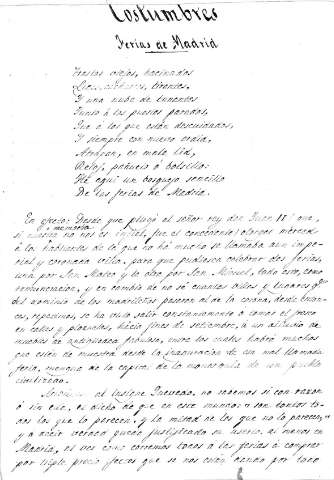 Costumbres
Ferias de Madrid
Trastos viejos, hacinados
tirantes,
Y una nube de tunantes
Junto á los puestos parados,
Que á los que están descuidados,
Y siempre con nuevo ardid,
Atrapan, en mala lid,
Reloj, pañuelo ó bolsillo:
Hé aquí un bosquejo sencillo
De las ferias de Madrid.
En efecto: Desde que plugo al señor rey don Juan IIº que,
si nuestra memoria no nos es infiel, fué el otorgar merced
á los habitantes de la que no há mucho se llamaba aun impe-
rial y coronada villa, para que pudiesen celebrar dos ferias,
una por San Mateo y la otra por San Miguel, todo esto, como
remuneracion, y en cambio de no sé cuantas villas y lugares qe.
del dominio de los madrileños pasaron al de la corona, desde enton-
ces, repetimos, se ha visto salir constantemente á tomar el fresco
en calles y plazuelas, hácia fines de setiembre, á un diluvio de
muebles de antigüedad fabulosa, entre los cuales habrá muchos
que estén de muestra desde la inauguracion de la mal llamada
feria, mengua de la capital de la monarquía de un pueblo
civilizado.
al Quevedo, no sabemos si con razon
ó sin ella, el dicho de que en este mundo: son tontos to-
dos los que lo parecen, y la mitad de los que no lo parecen;
y á decir verdad puede justificarse su aserto, al menos en
Madrid, al ver como corremos todos á las ferias á comprar
por triple precio cosas que se nos están dando por todo